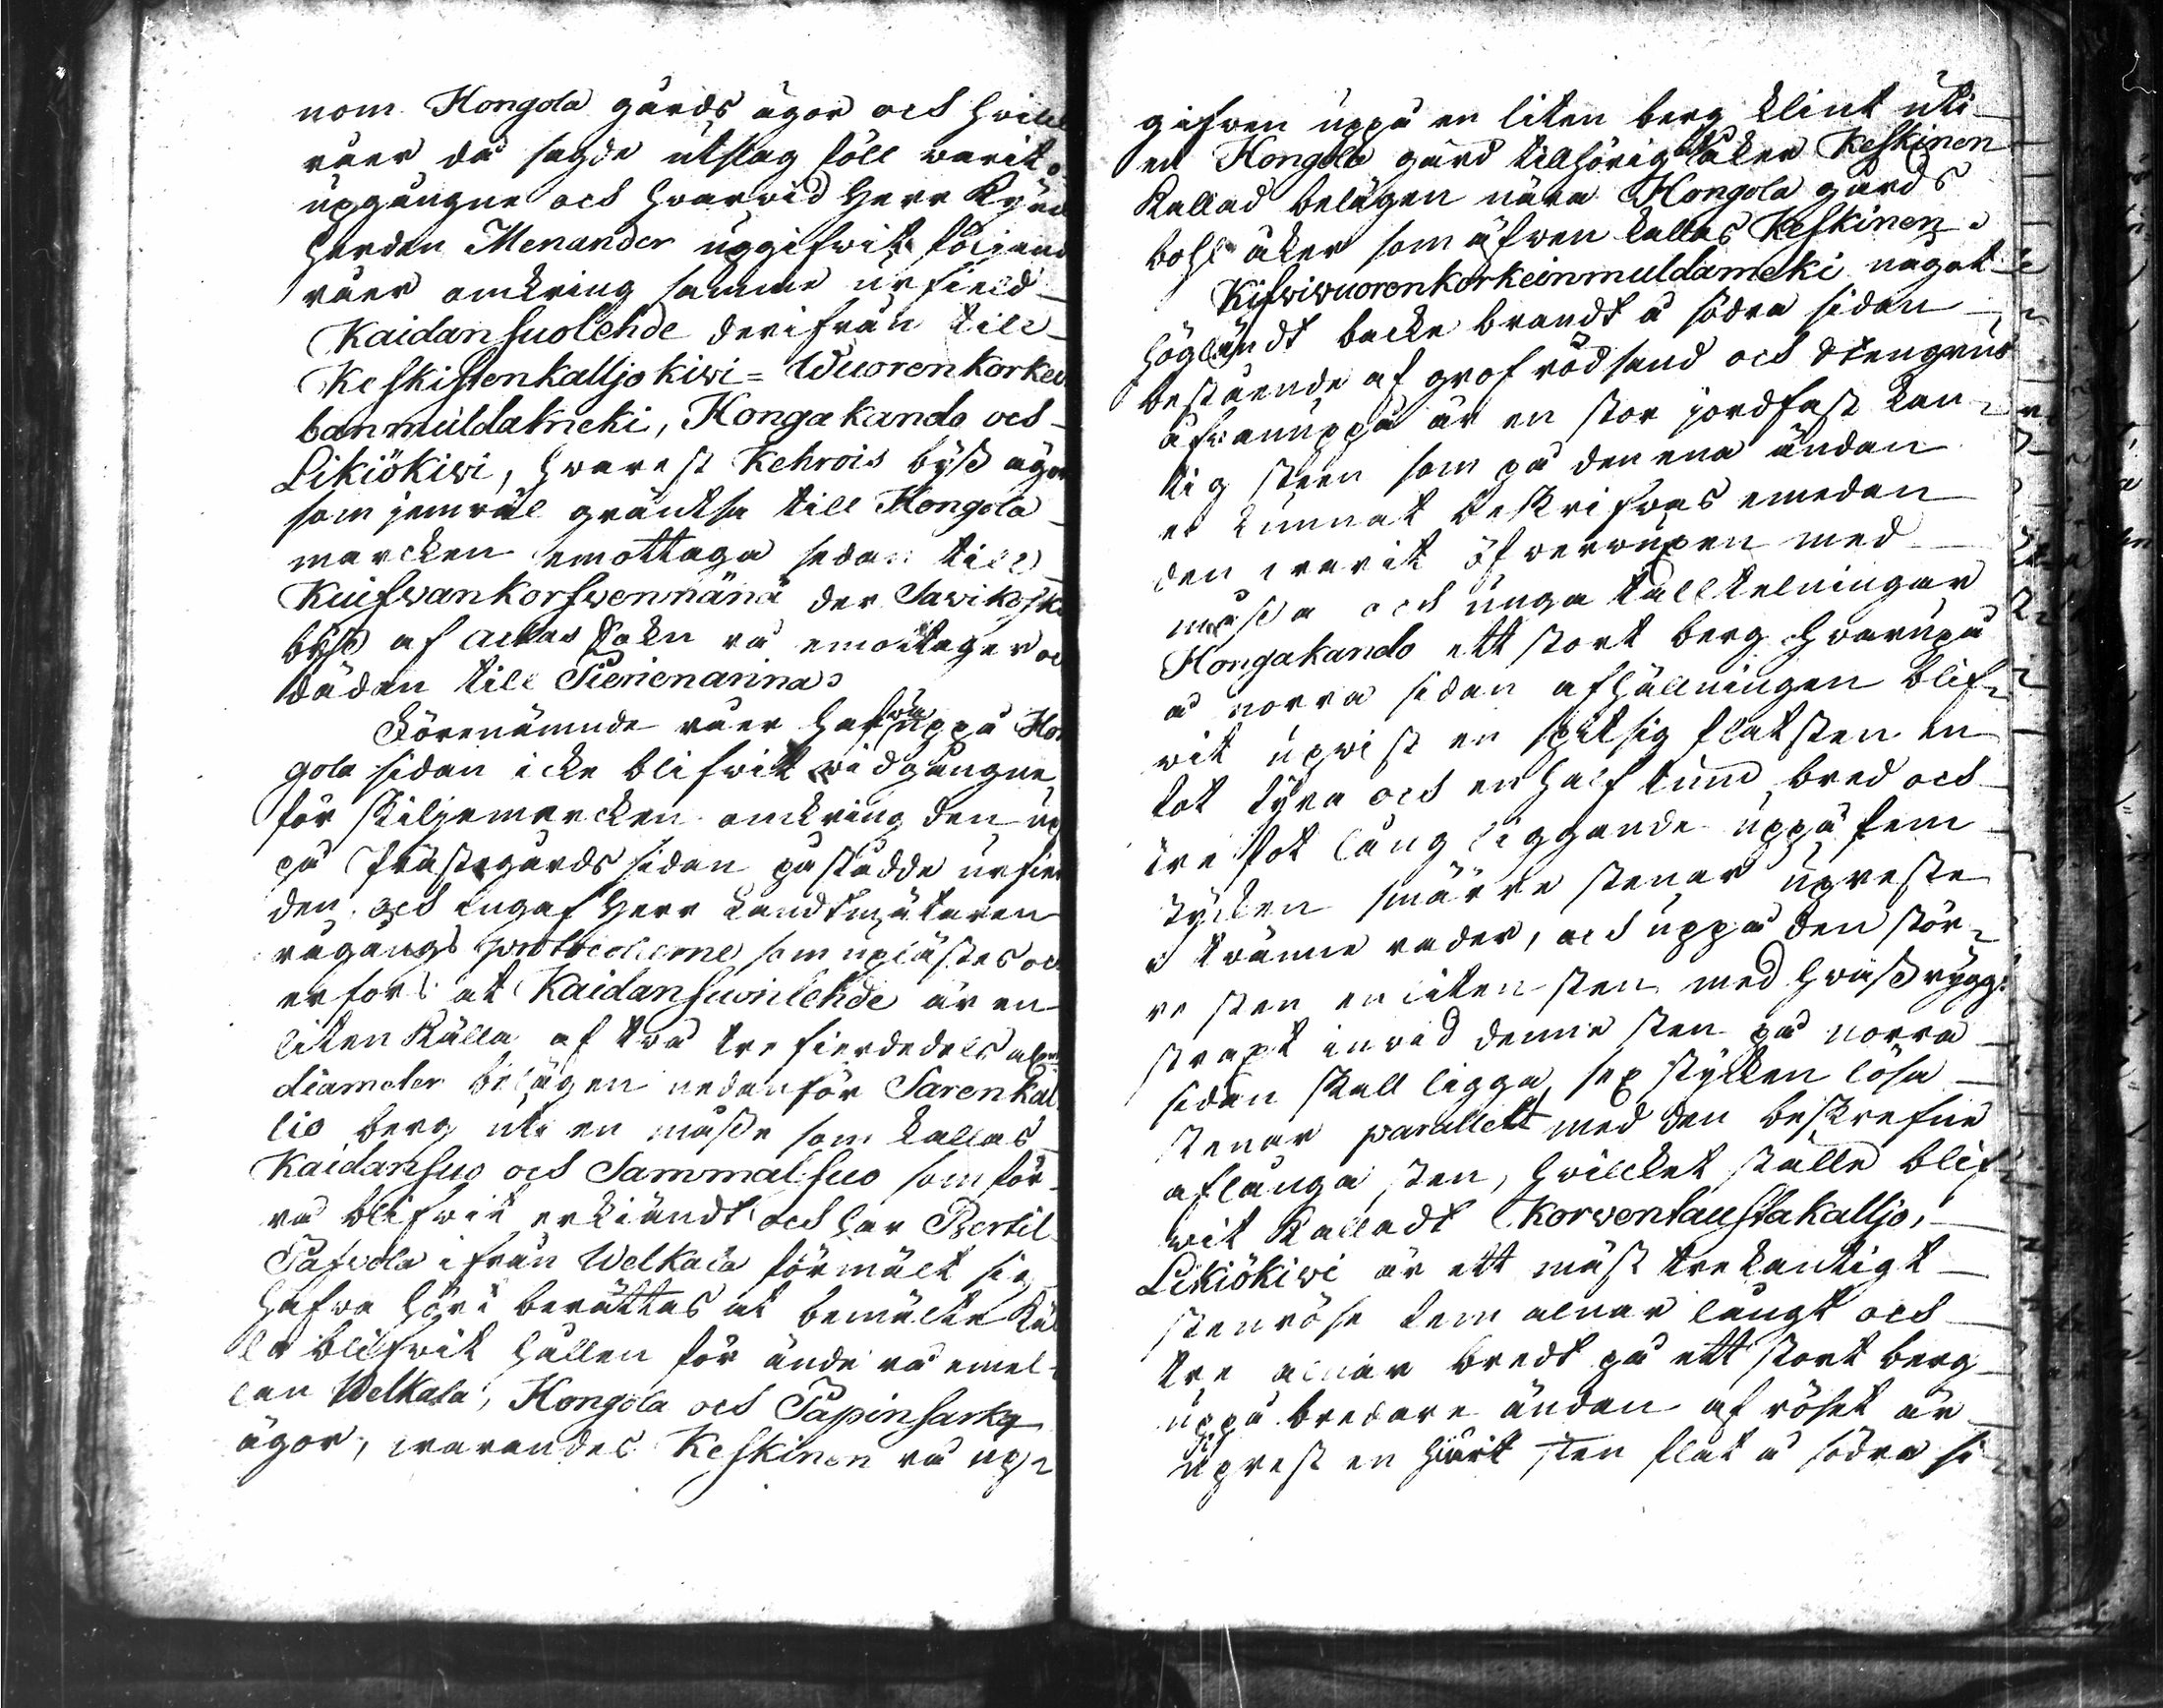 nom Hongola gårds ägor och hvilk
råer då sagde utslag föll warit
upgångne och hvarwid Herr Kyrck
herden Menander uppgifwit följand
råer omkring samma urfield
Kaidansuolehde derifrån till
Keskistenkalljo kiwi = Wuorenkorkei
banmuldameki, Hongakando och
Likiökiwi, hwarest Kehrois byß ägor
som jemväl gräntsa till Hongola
marcken emottaga sedan till
Kuifwankorfwennänä der Sawikoski
byß af Ackas Sokn rå emottager oc
dädan till Pienenarina
Förenämnde råer hafwa uppå Hon
gola sidan icke blifwit widgångne
för skiljemercken omkring den up
på Prästegårds sidan påstådde urfiel
den och engaf Herr Landtmätaren
rågångs protocollerne som uplästes och
erfors at Kaidansuonlehde är en
liten Källa af två tre fierdedels aln
diameter belägen nedanför Sarenkal
lio berg uti en måße som kallas
Kaidansuo och Sammalsuo som för
rå blifwit erkiändt och har Bertil
Pafvola ifrån Welkala förmält sig
hafwa hört berättas at bemälte Käl
la blifwit hållen för ände rå emel
lan Welkala, Hongola och Papinsarka
ägor, warandes Keskinen rå up
gifwen uppå en liten berg klint uti
en Hongola gård tillhörig åker Keskinen
Kallad belägen nära Hongola gårds
bohls åker som äfwen kallas Keskinen
Kifwiwuorenkorkeinmuldameki något
högländt backe brandt å södra sidan
bestående af grof rödsand och Stengrus
äfwanuppå är en stor jordfast kan
tig steen som på den ena ändan
ei kunnat beskrifwas emedan
den warit öfwerwuxen med
måßa och unga talltelningar
Hongakando ett stort berg hvarupå
å norra sidan afhällningen blif
wit upwist en spitsig flatsten en
fot fyra och en half tum bred och
tre fot lång liggande uppå fem
stycken smärre stenar upreste
i tvänne rader, och uppå den stör
re sten en liten sten med hwaß rygg
strapt inwid denne sten på norra
sidan skall ligga sex stycken lösa
stenar parallelt med den beskrefne
aflånga sten, hvilcket ställe blif
wit Kalladt Korwentaustakalljo,
Likiökiwi är ett mäst trekantigt
stenröse fem alnar långt och
tre alnar bredt på ett stort berg
uppå bredare ändan af röset är
uprest en hwit sten flat å södra si